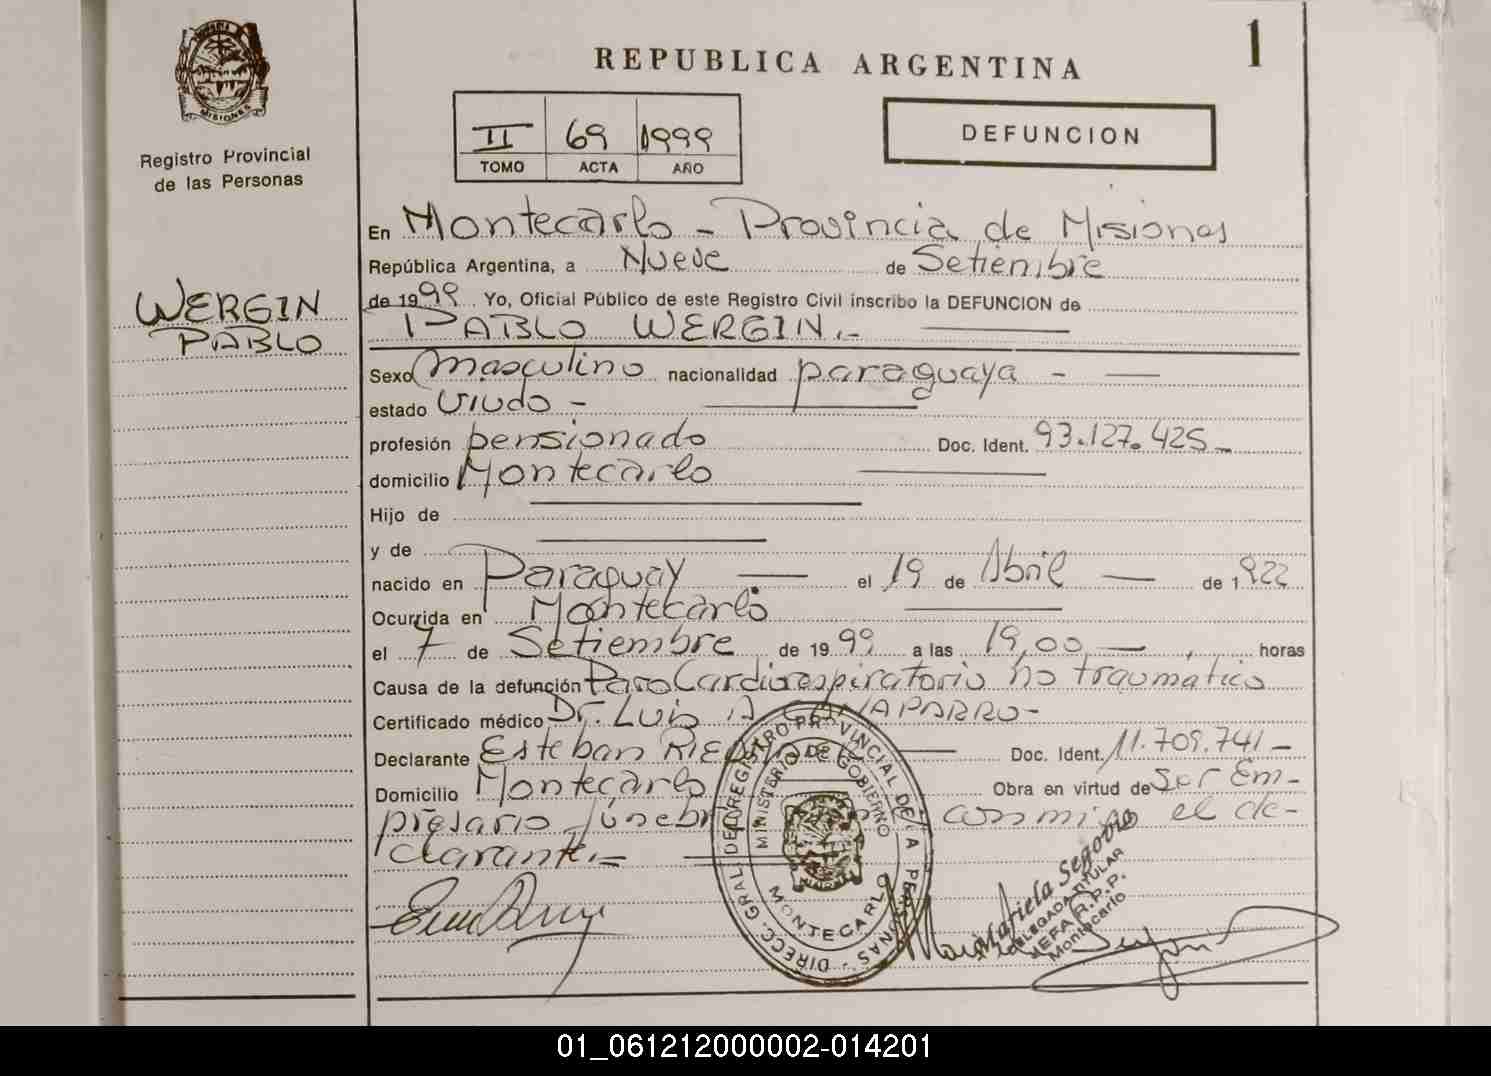 REPUBLICA ARGENTINA
1
MISIONES
Registro Provincial
de las Personas
II 69 1999
TOMO ACTA AÑO
DEFUNCION
WERGIN
PABLO
En Montecarlo - Provincia de Misiones
República Argentina, a Nueve de Setiembre
de 1999. Yo, Oficial Público de este Registro Civil inscribo la DEFUNCION de
PABLO WERGIN.-
Sexo Masculino nacionalidad paraguaya -
estado Viudo -
profesión pensionado Doc. Ident. 93.127.425_
domicilio Montecarlo
Hijo de
y de
nacido en Paraguay el 19 de Abril de 1922
Ocurrida en Montecarlo
el 7 de Setiembre de 1999 a las 19,00 horas
Causa de la defunción Paro Cardiorespiratorio no traumatico
Certificado médico Dr. Luis A CANAPARRO-
Declarante Esteban Doc. Ident. 11.709.741-
Domicilio Montecarlo Obra en virtud de Ser Em-
presario fúnebre el de-
clarante.-
DIRECC. GRAL. DEL REGISTRO PROVINCIAL DE LAS PERSONAS
MINISTERIO DE GOBIERNO
MONTECARLO
Mariela Segovia
DELEGADA TITULAR
JEFA R.P.P.
Montecarlo
01_061212000002-014201